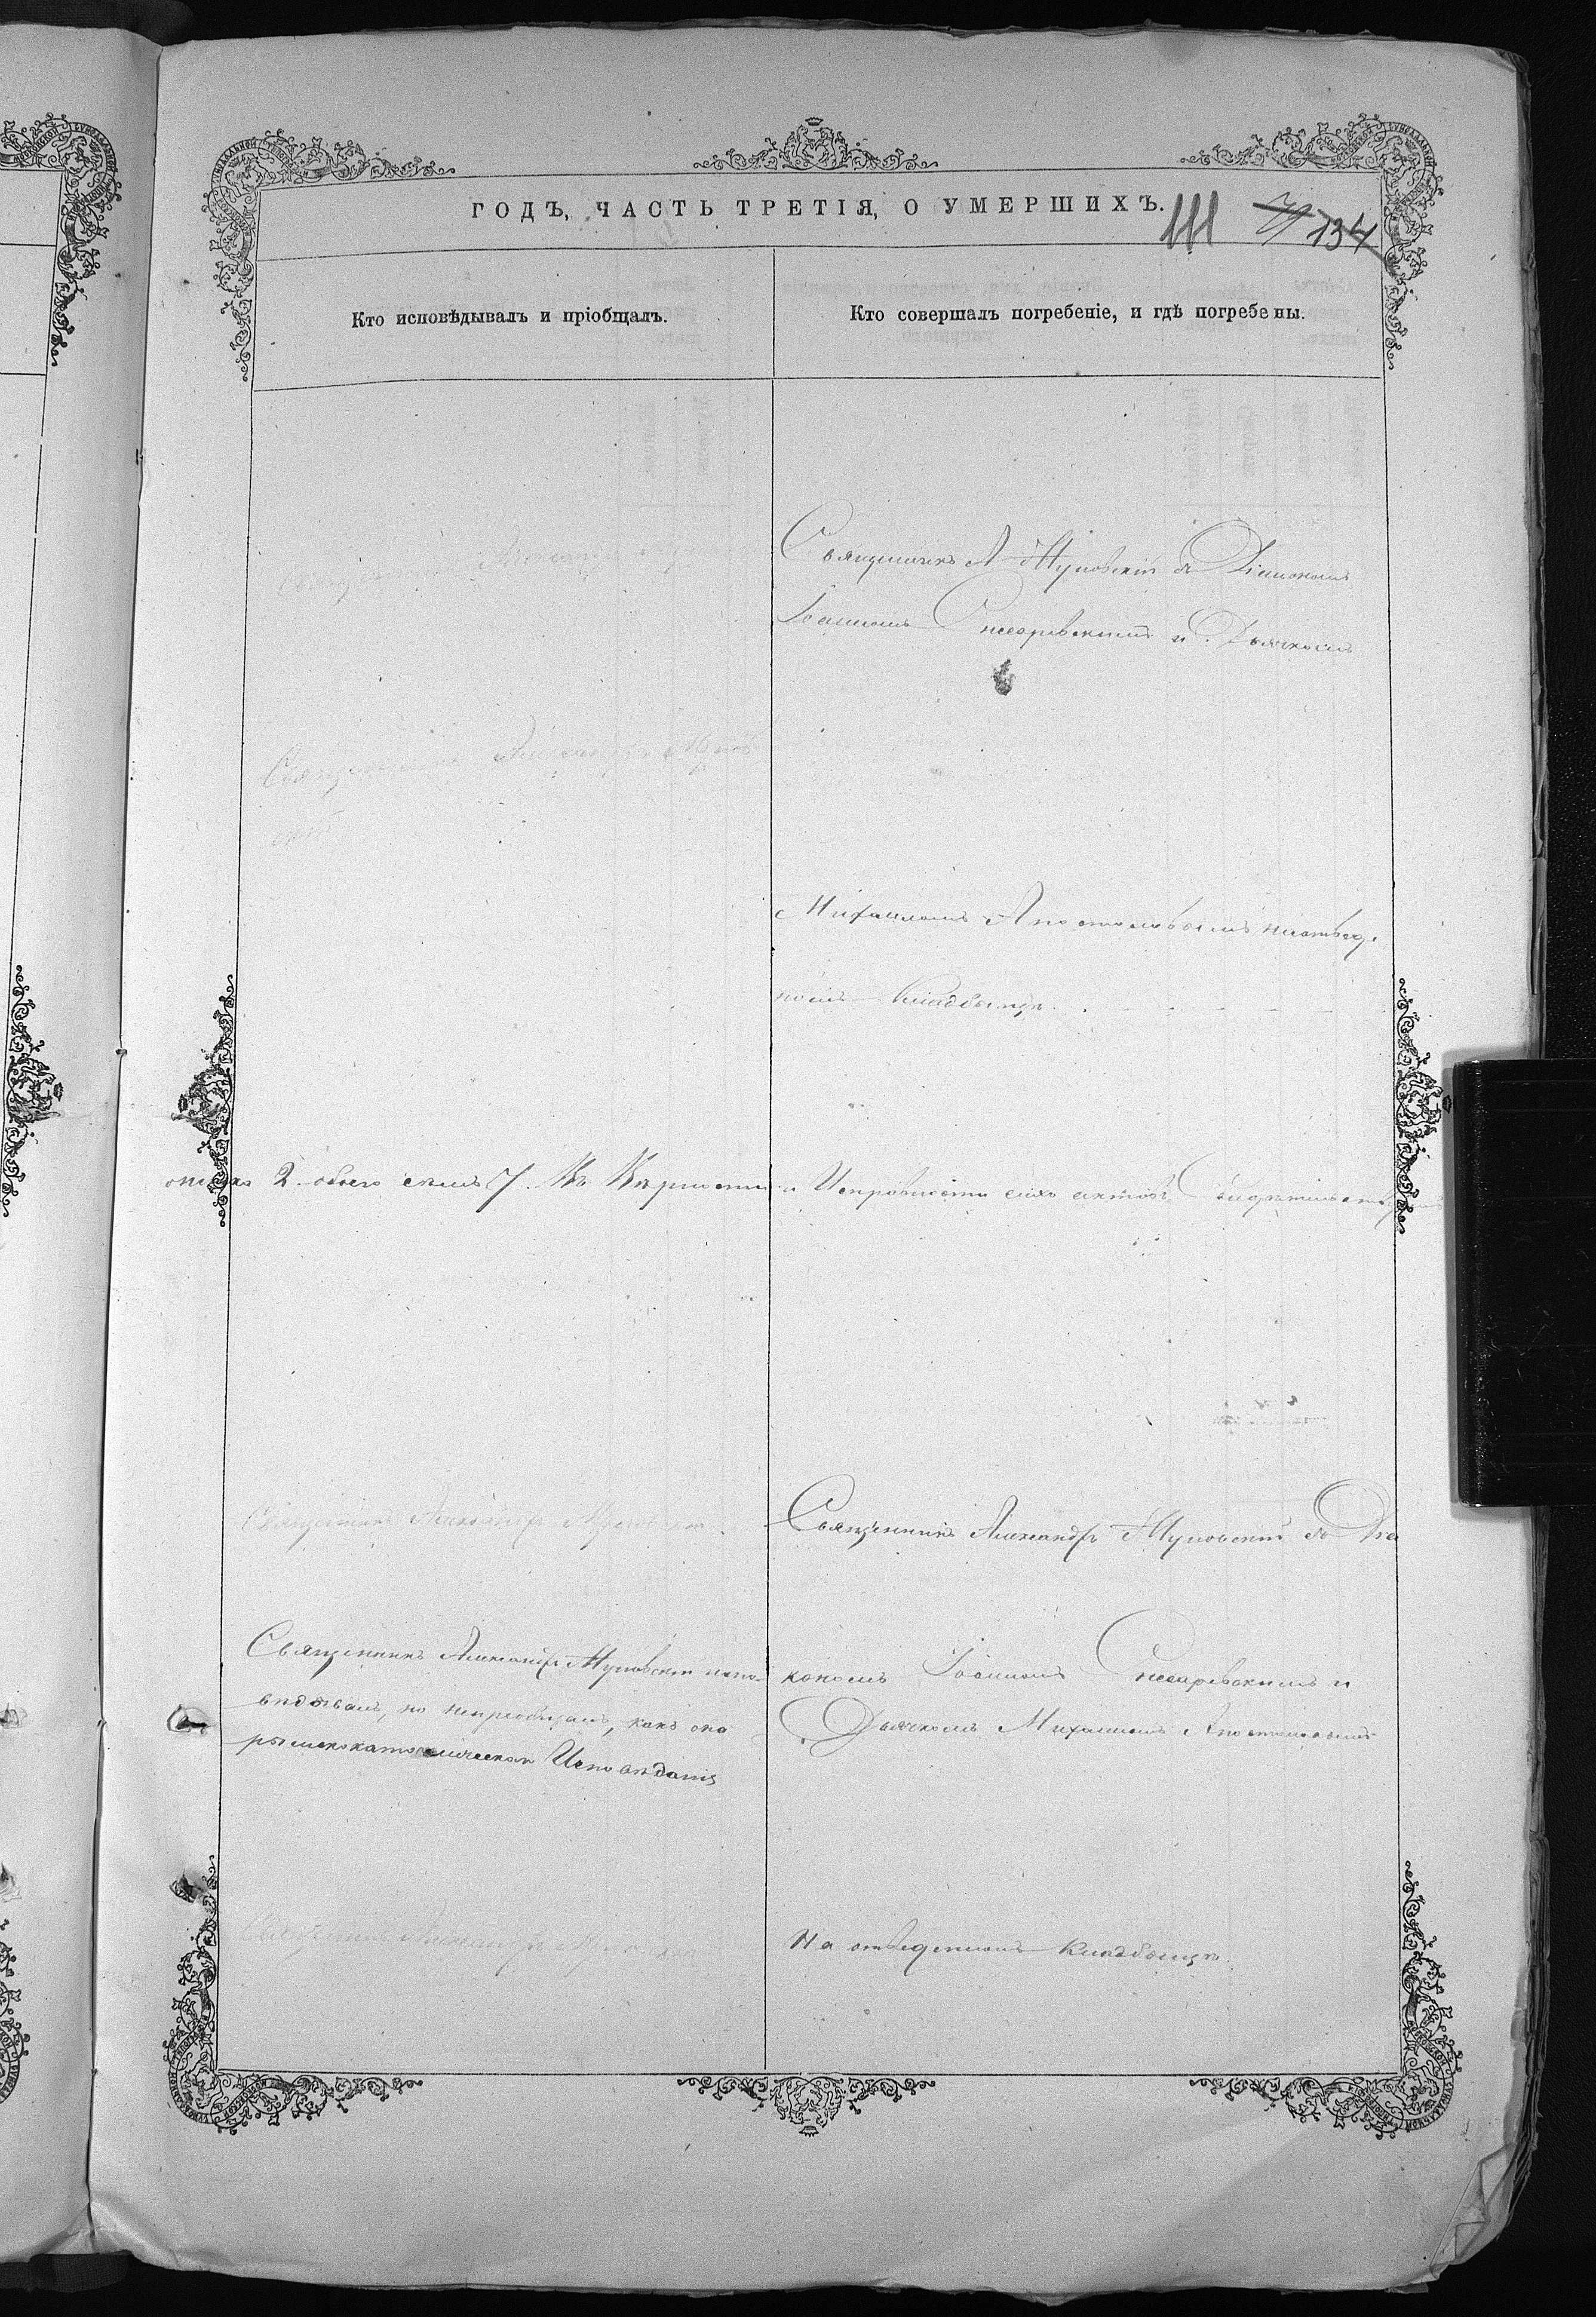 ГОДЪ, ЧАСТЬ ТРЕТІЯ, О УМЕРШИХЪ.
111 134
Кто исповѣдывалъ и пріобщалъ.
Кто совершалъ погребеніе, и гдѣ погребены.
Священникъ А Муловскій съ Діакономъ
Іоанномъ Снесаревскимъ и Дьячкомъ
Священникъ Александръ
Михаиломъ Апостоловымъ
номъ кладбищѣ
2 обоего 7. Въ Вѣрности и Исправности сихъ актовъ
Священникъ Александръ Муловскій
Священникъ Александръ Муловскій съ Діа
Священникъ Александръ Муловскій испо-
вѣдывалъ, но непріобщалъ, какъ она
римскокатолическаго Исповѣданія
кономъ Іоанномъ Снесаревскимъ и
Дьячкомъ Михаиломъ Апостоловымъ
Священникъ Александръ Муловскій
На отведенномъ кладбищѣ